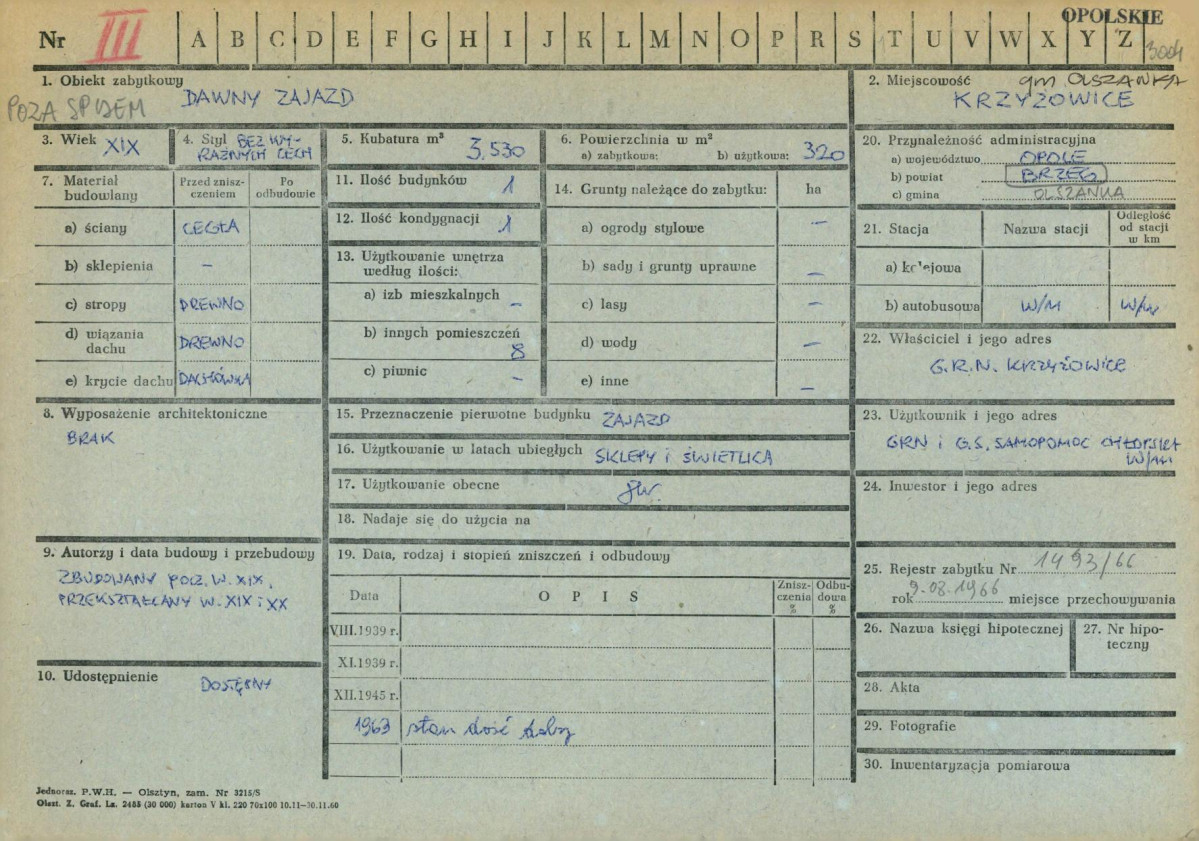 OPOLSKIE
Nr III A B C D E F G H I J K L M N O P R S T U V W X Y Z 3004
1. Obiekt zabytkowy
POZA SPISEM
DAWNY ZAJAZD
2. Miejscowość gm. OLSZANKA
KRZYŻOWICE
3. Wiek XIX
4. Styl BEZ WY-
RAŹNYCH CECH
5. Kubatura m³ 3.530
6. Powierzchnia w m²
a) zabytkowa: b) użytkowa: 320
7. Materiał budowlany
Przed znisz-
czeniem
Po
odbudowie
a) ściany CEGŁA
b) sklepienia –
c) stropy DREWNO
d) wiązania
dachu DREWNO
e) krycie dachu DACHÓWKA
8. Wyposażenie architektoniczne
BRAK
9. Autorzy i data budowy i przebudowy
ZBUDOWANY POCZ. W. XIX,
PRZEKSZTAŁCANY W. XIX i XX
10. Udostępnienie
DOSTĘPNY
11. Ilość budynków 1
12. Ilość kondygnacji 1
13. Użytkowanie wnętrza
według ilości:
a) izb mieszkalnych –
b) innych pomieszczeń
8
c) piwnic –
14. Grunty należące do zabytku: ha
a) ogrody stylowe –
b) sady i grunty uprawne –
c) lasy –
d) wody –
e) inne –
15. Przeznaczenie pierwotne budynku ZAJAZD
16. Użytkowanie w latach ubiegłych SKLEPY i ŚWIETLICA
17. Użytkowanie obecne jw.
18. Nadaje się do użycia na
19. Data, rodzaj i stopień zniszczeń i odbudowy
Data OPIS
Znisz-
czenia
%
Odbu-
dowa
%
VIII.1939 r.
XI.1939 r.
XII.1945 r.
1963 stan dość dobry
20. Przynależność administracyjna
a) województwo OPOLE
b) powiat BRZEG
c) gmina OLSZANKA
21. Stacja Nazwa stacji
Odległość
od stacji
w km
a) kolejowa
b) autobusowa W/M W/M
22. Właściciel i jego adres
G.R.N. KRZYŻOWICE
23. Użytkownik i jego adres
GRN i G.S. SAMOPOMOC CHŁOPSKA
W/M
24. Inwestor i jego adres
25. Rejestr zabytku Nr 1493/66
rok 9.08.1966 miejsce przechowywania
26. Nazwa księgi hipotecznej
27. Nr hipo-
teczny
28. Akta
29. Fotografie
30. Inwentaryzacja pomiarowa
Jednoraz. P.W.H. — Olsztyn, zam. Nr 3215/S
Olszt. Z. Graf. Lz. 2485 (30 000) karton V kl. 220 70x100 10.11—30.11.60